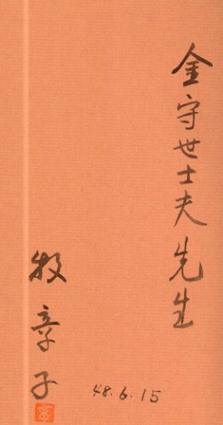 金守世士夫先生
牧章子
48.6.15